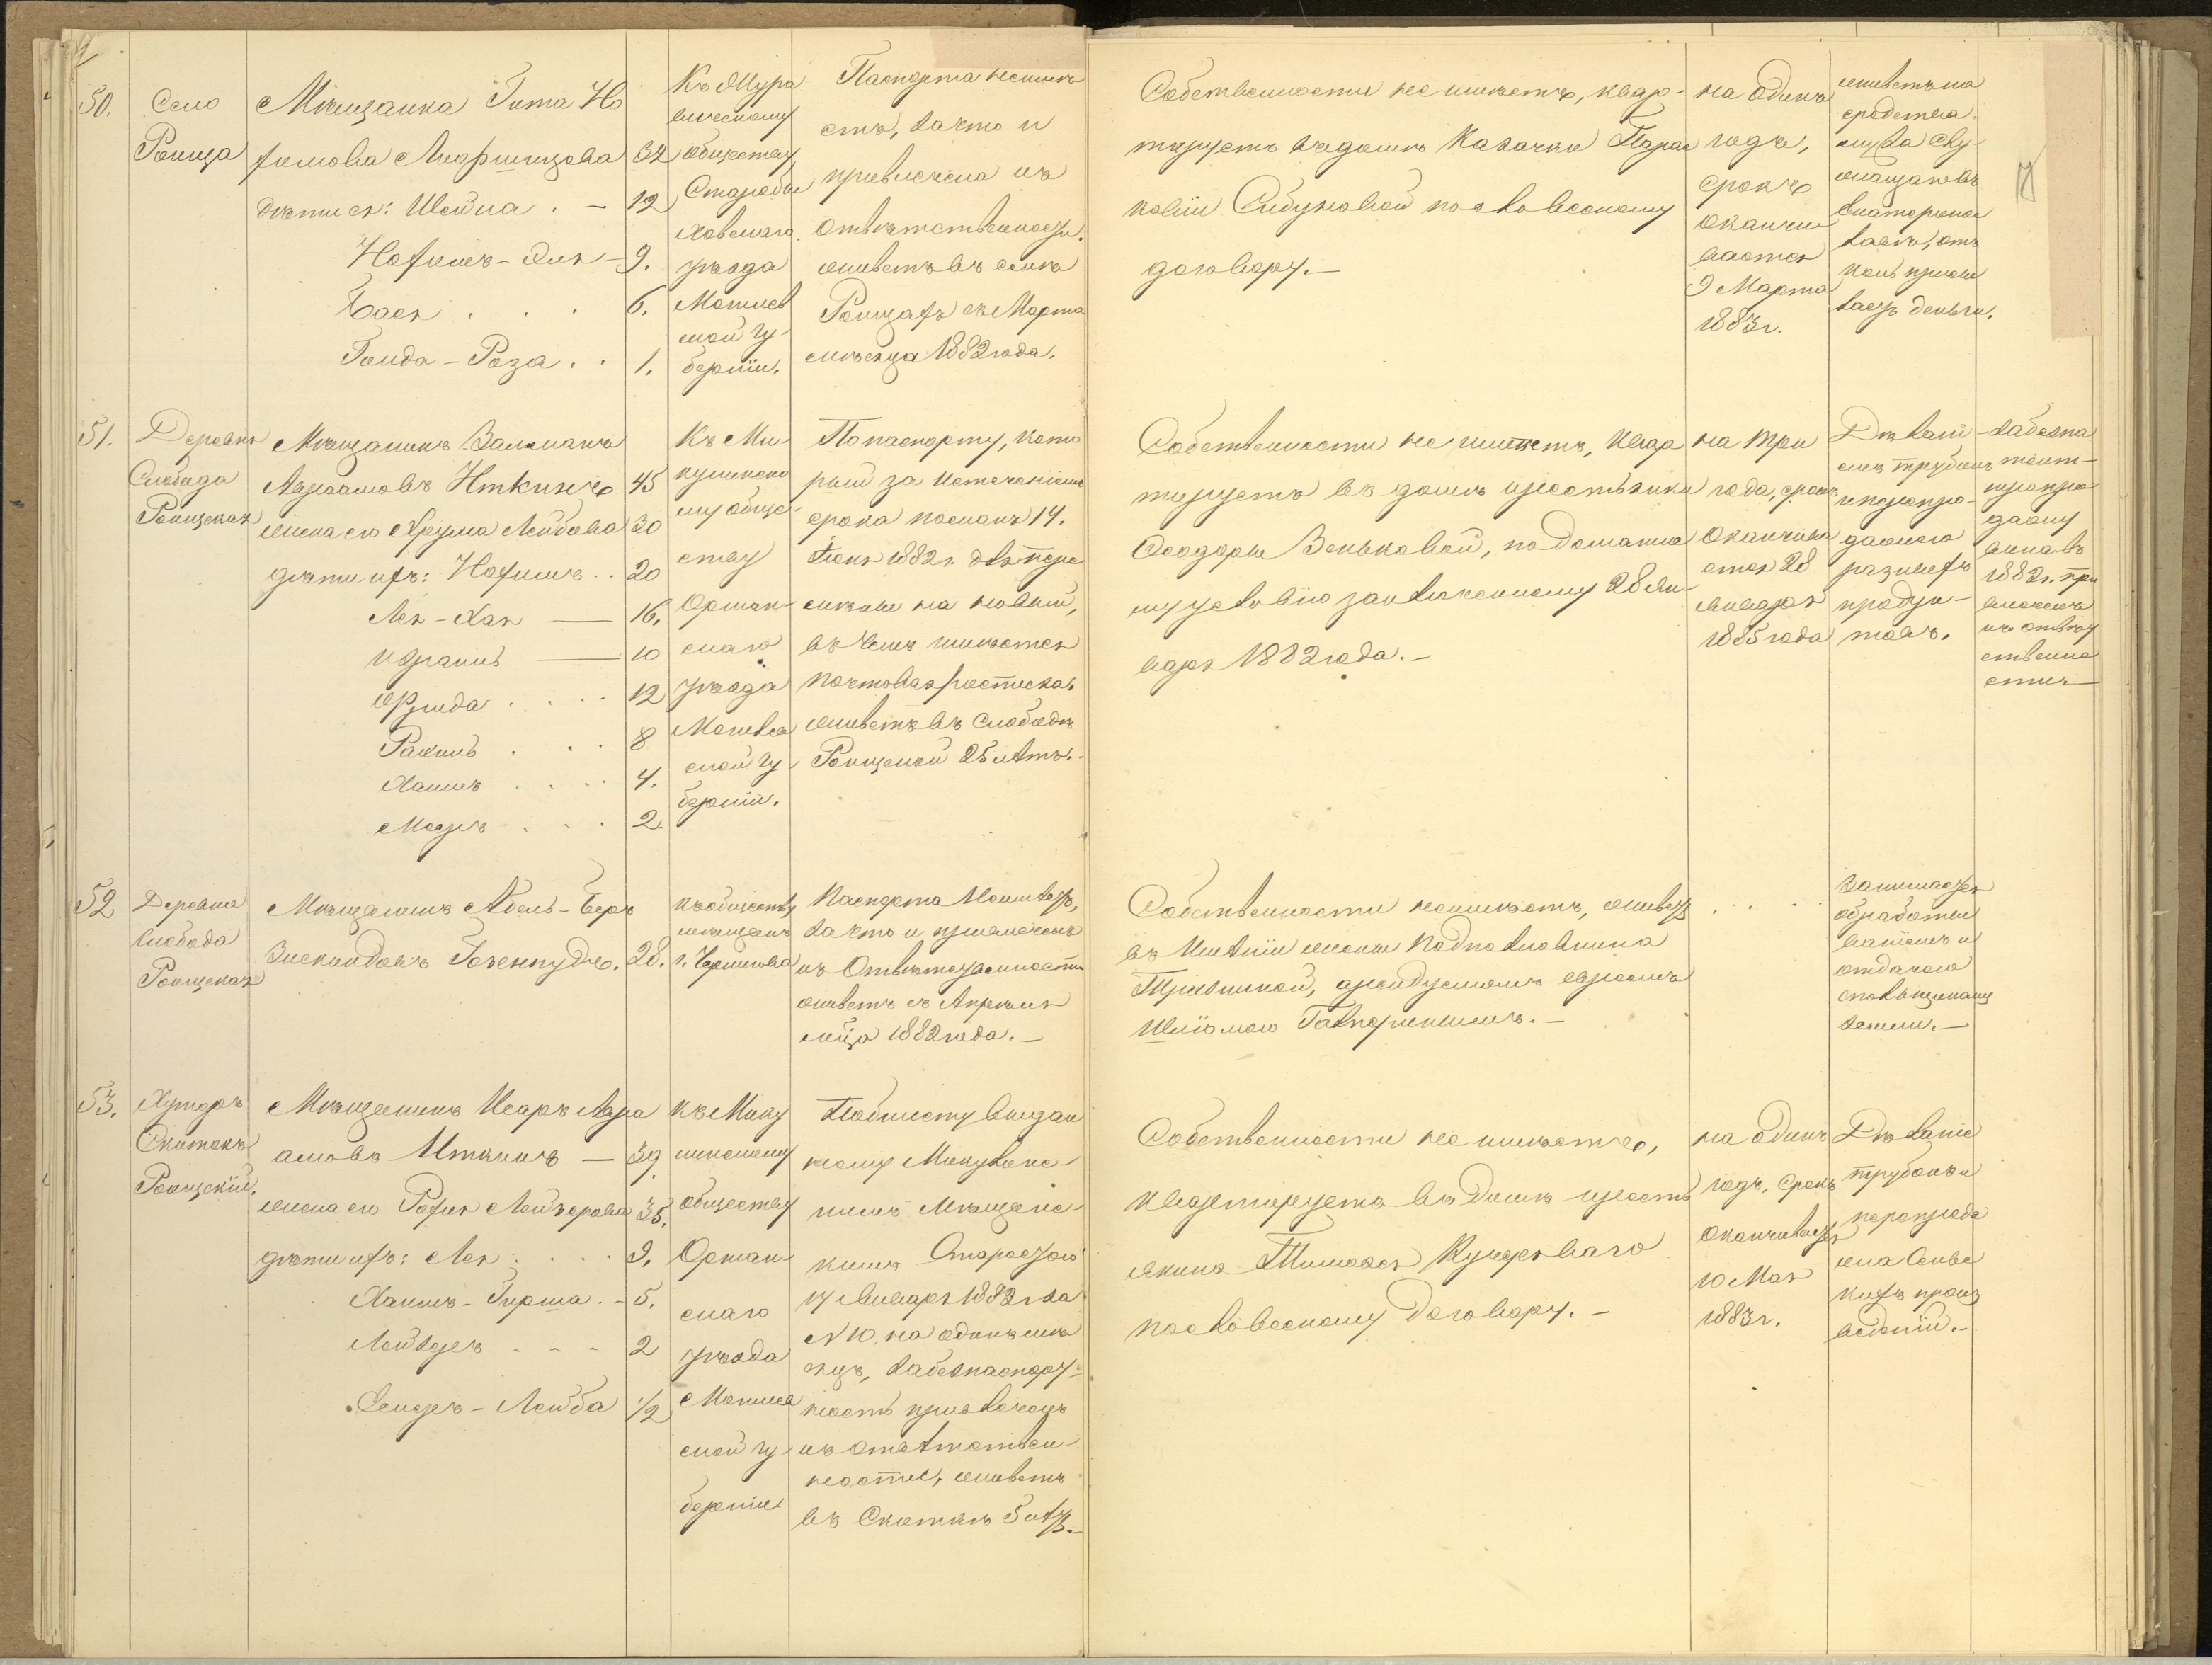 50.
Село
Роища
Мѣщанка Гита Но
химова
дѣти ея: Шейна . —
Нохимъ-Эля —
Бася . . .
Гинда-Роза . .
32
12
9.
6.
1.
обществу
уѣзда
Могилев
ской гу-
берніи.
Паспорта неимѣ
етъ, за что и
привлечена къ
отвѣтственности.
живетъ въ селѣ
Роищахъ съ Марта
мѣсяца 1882 года.
Собственности не имѣетъ, квар-
тируетъ въ домѣ Казачки Парас
ковіи по словесному
договору. —
на одинъ
годъ,
срокъ
оканчи
вается
9 Марта
1883 г.
живетъ на
средства
мужа
деньги.
7
51.
Деревня
Слобода
Роищская
Мѣщанинъ Залманъ
Абрамовъ Иткинъ
жена его Фрума Лейбова
дѣти ихъ: Нохимъ . .
Лея-Хая —
Израиль —
Фрида . . . .
Рахиль . . .
Хаимъ . . . .
Мееръ . . .
45
30
20
16.
10
12
8
4.
2.
Къ Ми-
кулинско
му обще-
ству
Оршан-
скаго
уѣзда
Могилев
ской гу-
берніи.
По паспорту, кото
рый за истеченіемъ
срока посланъ 14.
Іюня 1882 г. для пере
мѣны на новый,
въ чемъ имѣется
почтовая росписка.
живетъ въ Слободѣ
Роищской 25 лѣтъ.
Собственности не имѣетъ, квар
тируетъ въ домѣ крестьянки
Феодоры Веньковой, по домашне
му условію заключенному 28 Ян-
варя 1882 года. —
на три
года, срокъ
оканчива
ется 28
Января
1885 года
Дѣлані-
емъ трубокъ
и перепро-
дажею
разныхъ
продук-
товъ.
За безпа
тент-
ную про
дажу
вина въ
1882 г. при
влеченъ
къ отвѣт
ственно
сти. —
52
Деревня
Слобода
Роищская
Мѣщанинъ Абель-Беръ
28.
Къ обществу
мѣщанъ
г. Чернигова
Паспорта Неимѣетъ,
за что и привлеченъ
къ Отвѣтственности
живетъ съ Апрѣля
мѣсяца 1882 года. —
Собственности неимѣетъ, живетъ
въ имѣніи жены Подполковника
арендуемомъ евреемъ
Шліомою —
. . .
Занимается
обработы
ваніемъ и
отдачею
землею. —
53.
Хуторъ
Скитокъ
Роищскій.
Мѣщанинъ Исаръ Абра
амовъ Иткинъ —
жена его Рохля Лейзерова
дѣти ихъ: Лея . . . .
Хаимъ-Гирша . —
Лейзеръ . . .
Сендеръ-Лейба
39
35.
9.
5.
2
1/2
Къ Мику
линскому
обществу
Оршан-
скаго
уѣзда
Могилев
ской гу-
берніи
По билету выдан
ному Микулинс-
кимъ Мѣщанс-
кимъ Старостою
17 Января 1882 г. за
N 10. на одинъ мѣ
сяцъ, за безпаспорт-
ность привлеченъ
къ отвѣтствен-
ности, живетъ
въ Скиткѣ 5 лѣтъ. —
Собственности не имѣетъ,
квартируетъ въ домѣ кресть
янина Тимофея Кучероваго
по словесному договору. —
на одинъ
годъ, срокъ
оканчивается
10 Мая
1883 г.
Дѣланіе
трубокъ и
перепрода
жа сельс
кихъ произ
веденій. —